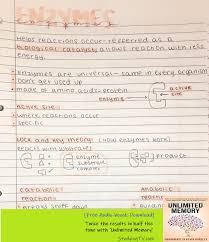 ENZYMES
Helps reactions occur - referred as a
biological catalyst allows reaction with less
energy.
• Enzymes are universal - same in every organism
• Don't get used up
• made of amino acids - protein
enzyme
active
site
active site
• where reactions occur
• specific
Lock and key theory: (how enzymes work)
(react with substrate)
enzyme
substrate
complex
product
Catabolic
reaction
breaks stuff down
Anabolic
[Free Audio Book Download]
Twice the results in half the
time with 'Unlimited Memory'
StudyingTv.com
UNLIMITED
MEMORY